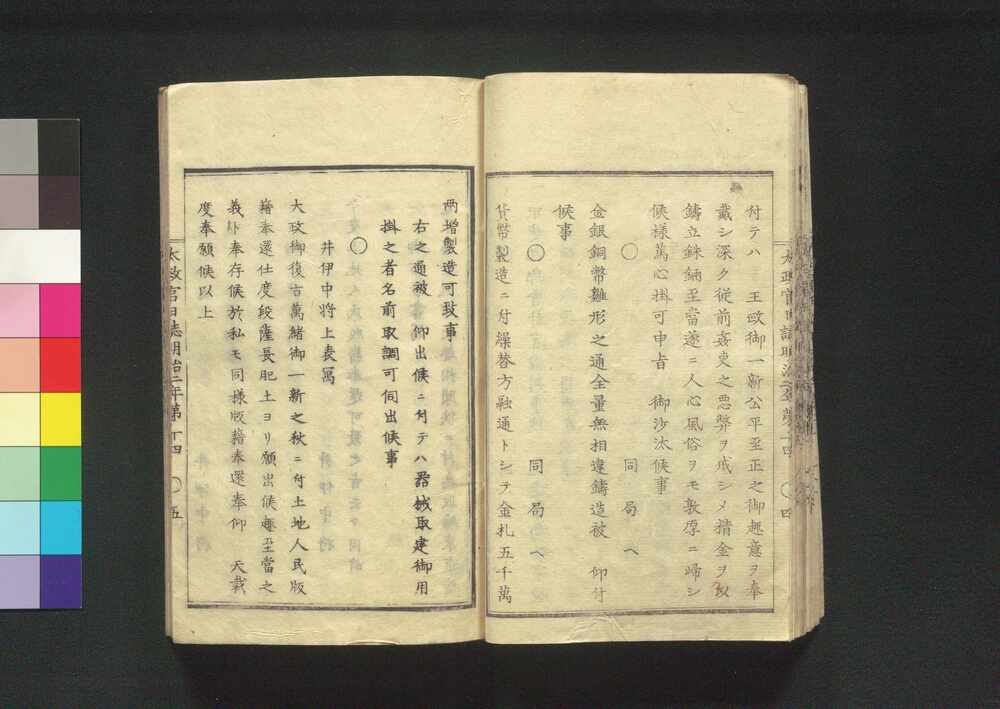 付テハ　王政御一新公平至正之御趣意ヲ奉
戴シ深ク従前姦吏之悪弊ヲ戒シメ精金ヲ以
鋳立銖錙至當遂ニ人心風俗ヲモ敦厚ニ帰シ
候様萬心掛可申旨　御沙汰候事
○　同局ヘ
金銀銅幣雛形之通全量無相違鋳造被　仰付
候事
○　同局ヘ
貨幣製造ニ付繰替方融通トシテ金札五千萬
両増製造可致事
右之通被　仰出候ニ付テハ器械取建御用
掛之者名前取調可伺出候事
○
井伊中将上表写
大政御復古萬緒御一新之秋ニ付土地人民版
籍奉還仕度段薩長肥土ヨリ願出候趣至當之
義ト奉存候於私モ同様版籍奉還奉仰　天裁
度奉願候以上
太政官日誌明治二年第十四　○五
太政官日誌明治二年第十四　○四